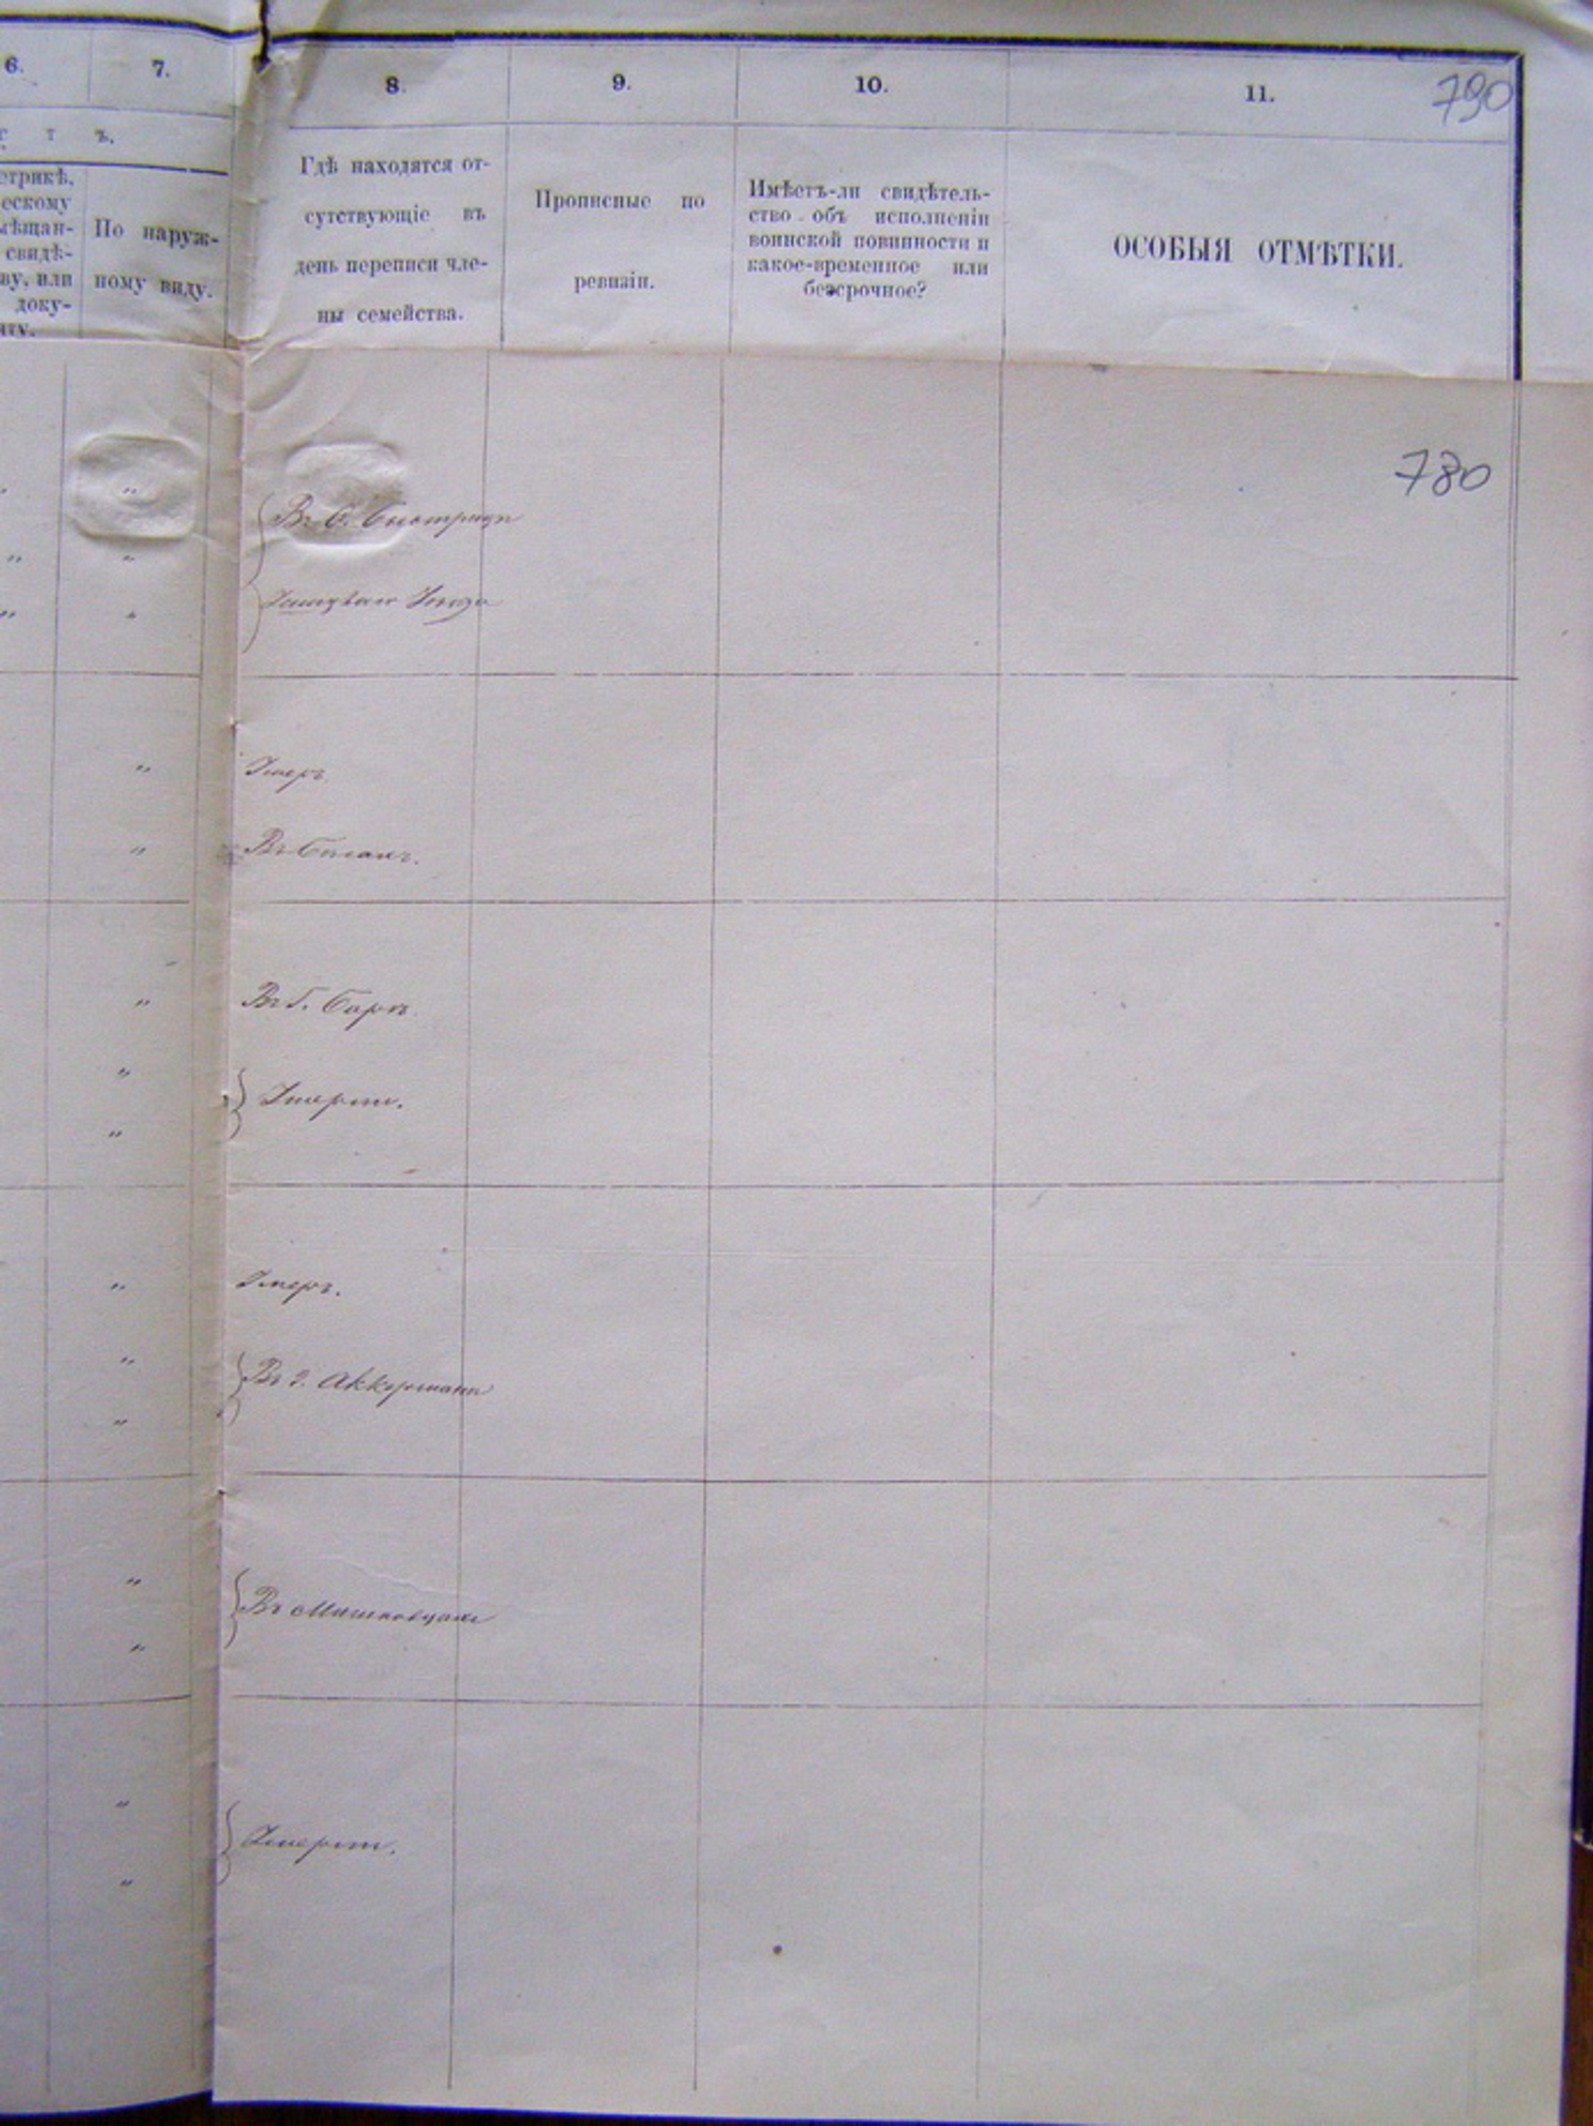 6. 7. 8. 9. 10. 11. 790
с т ъ.
етрикѣ,
ескому
мѣщан-
свидѣ-
ву, или
доку-
нту.
По наруж-
ному виду.
Гдѣ находятся от-
сутствующіе въ
день переписи чле-
ны семейства.
Прописные по
ревизіи.
Имѣетъ-ли свидѣтель-
ство объ исполненіи
воинской повинности и
какое-временное или
безсрочное?
ОСОБЫЯ ОТМѢТКИ.
780
Въ
Умеръ
Въ
Въ г. Барѣ
Умерли.
Умеръ.
Въ г. Аккерманѣ
Въ Мишковцахъ
Умерли.